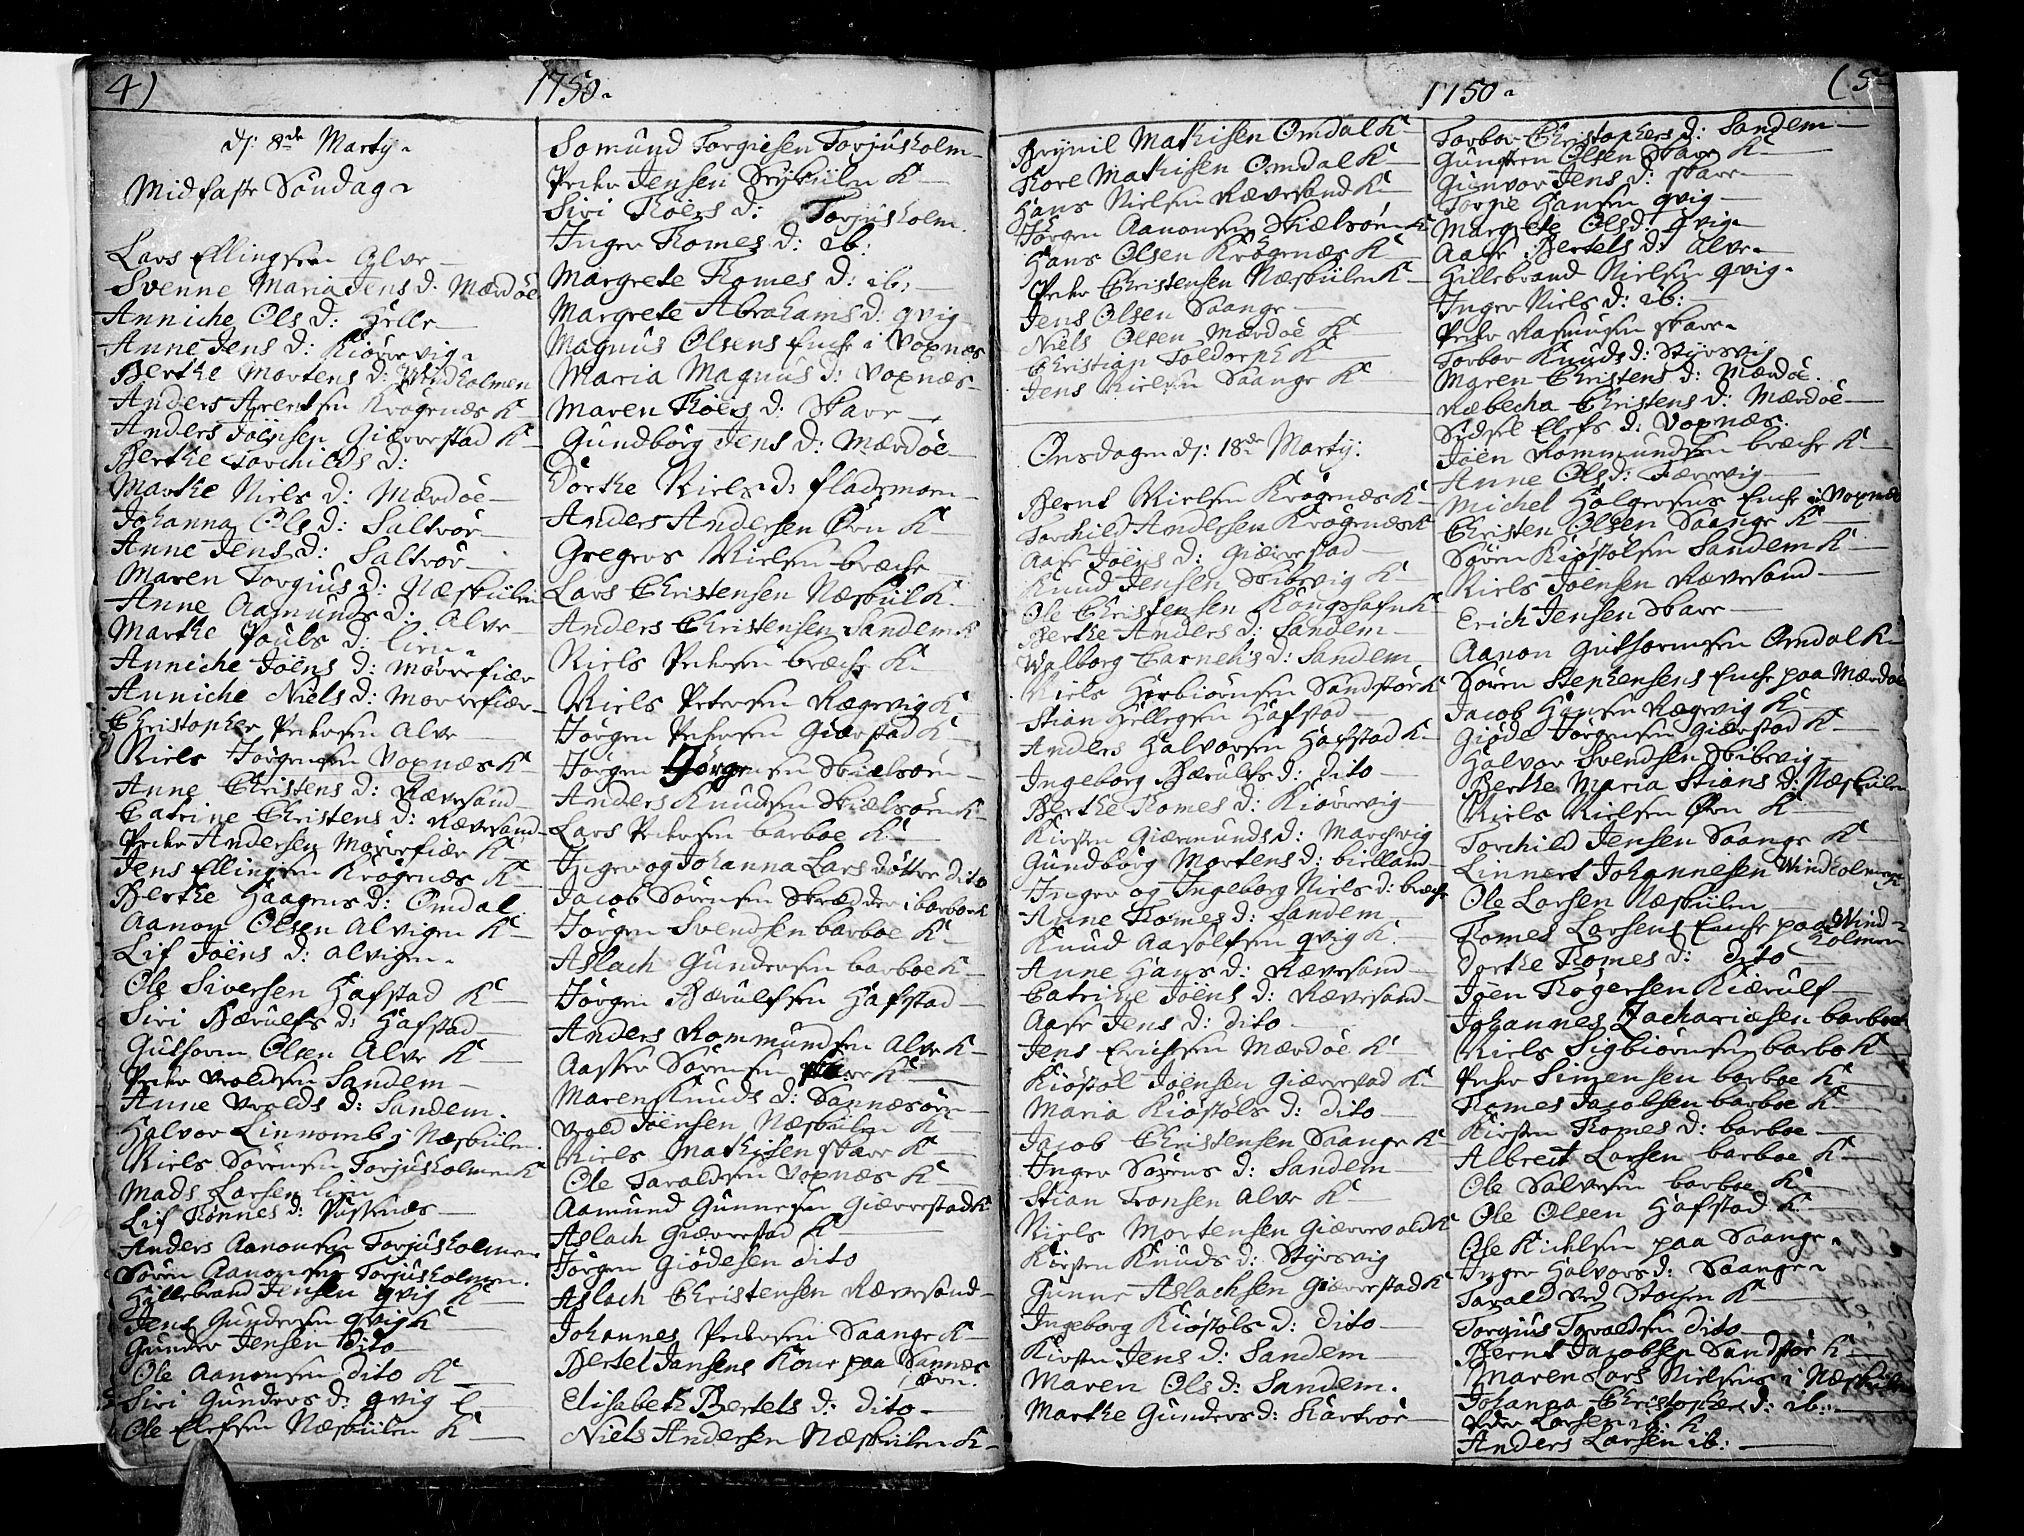 4)
1750.
dj: 8de Martÿ.
Midfaste Söndag.
Lars Ellingsen Alve
Svenne Maria Jens d: Mærdöe
Anniche Ols d: Helle
Anne Jens d: Kiörrevig.
Berthe Mortens d: Windholmen
Anders Arentsen Krögenæs K
Anders Jöensen Giærrestad K
Berthe Torchilds d:
Marthe Niels d: Mærdöe
Johanna Ols d: Saltröe
Anne Jens d: Saltröe
Maren Torgius d: Næsbüilen
Anne Aamunds d: Alve
Marthe Pouls d: lien.
Anniche Jöens d: Morrefiær
Anniche Niels d: Morrefiær
Christopher Pedersen Alve
Niels Jörgensen Voxnæs K
Anne Christens d: Rævesand
Catrine Christens d: Rævesand
Peder Andersen Morrefiær K
Jens Ellingsen Krögenæs K
Berthe Haagens d: Omdal
Aanon Olsen Alvigen K
Lif Jöens d: Alvigen.
Ole Siversen Hafstad K
Siri Bærulfs d: Hafstad
Guttorm Olsen Alve K
Peder Vroldsen Sandem
Anne Vrolds d: Sandem.
Halvor Linnom i Næsbüilen.
Niels Sörensen Torjusholmen K
Mads Larsen lien
Lif Tönnes d:
Anders Aanonsen Torjusholmen
Sören Aanonsen Torjusholmen.
Hillebrand Jensen qvig K
Jens Gundersen qvig K
Gunder Jensen dito
Ole Aanonsen dito K
Siri Gunders d: qvig
Ole Elefsen Næsbüilen K
Somund Torgiesen Torjusholm
Peder Jensen K
Siri d: Torjusholm.
Inger Tomes d: ib:
Margrete Tomes d: ib:
Margrete Abrahams d: qvig
Magnus Olsens Encke i Voxnæs
Maria Magnus d: Voxnæs
Maren d: Skare
Gundborg Jens d: Mærdöe
Dorthe Niels d: Flademoen
Anders Andersen Örn K
Gregers Nielsen bræcke
Lars Christensen Næsbüil K
Anders Christensen Sandem K
Niels Pedersen bræcke K
Niels Petersen Rægevig K
Jörgen Pedersen Giærstad K
Jörgen Jörgensen Skielsöen
Anders Knudsen Skielsöen K
Lars Pedersen barboe K
Inger og Johanna Lars döttre dito
Jacob Sörensen Skrædder i barboe K
Jörgen Svendsen barboe K
Aslach Gundersen barboe K
Jörgen Bærulfsen Hafstad
Anders Rommundsen Alve K
Aasten Sörensen K
Maren Knuds d: Sannæsöen
Vrold Jöensen Næsbüilen K
Niels Mathisen Skare K
Ole Taraldsen Voxnæs K
Aamund Gunnesen Giærrestad K
Aslach Giærrestad K
Jörgen Giödesen dito
Aslach Christensen Rævesand
Johannes Pedersen Saange K
Bertel Jansens Kone paa Sannæs
öen.
Elisabeth Bertels d: dito
Niels Andersen Næsbüilen K
1750.
(5
Brynil Mathisen Omdal K
Tore Mathisen Omdal K
Hans Nielsen Rævesand K
Jörgen Aanonsen Skielsöen K
Hans Olsen Krögenæs K
Peder Christensen Næsbüilen K
Jens Olsen Saange
Niels Olsen Mærdöe K
Christian Toldorph K
Jens Nielsen Saange K
Onsdagen dj: 18de Martÿ:
Bernt Nielsen Krögenæs K
Torchild Andersen Krögenæs K
Aase Jöens d: Giærrestad
Knud Jensen Skibevig K
Ole Christensen Kongshafn K
Berthe Anders d: Sandem
Walborg Carnelis d: Sandem
Niels Herbiörnsen Sandstöe K
Stian Kellegsen Hafstad
Anders Halvorsen Hafstad K
Ingeborg Bærulfs d: dito
Berthe Tomes d: Kiörrevig
Kirsten Giærmunds d: Marchvig
Gundborg Mortens d: bielland
Inger og Ingeborg Niels d: bræcke
Anne Tomes d: Sandem.
Knud Aasolfsen qvig K.
Anne Hans d: Rævesand
Catrine Jöens d: Rævesand
Aase Jens d: dito
Jens Erichsen Mærdöe K
Kiöstöl Jöensen Giærrestad K
Maria Kiöstöls d: dito
Jacob Christensen Saange K
Inger Sörens d: Sandem
Stian Tronsen Alve K
Niels Mortensen Giærrevold K
Kirsten Knuds d: Styrsvig
Gunne Aslachsen Giærrestad K
Ingeborg Kiöstöls d: dito
Kirsten Jens d: Sandem
Maren Ols d: Sandem.
Marthe Gunders d: Kartröe
Torbor Christophers d: Sandem
Gunsten Olsen Skare K
Gunvor Jens d: Skare
Torgie Hansen qvig
Margrete Ols d: qvig
Aase Bertels d: Alve
Hillebrand Nielsen qvig.
Inger Niels d: ib:
Peder Rasmusen Skare.
Torbor Knuds d: Styrsvig
Maren Christens d: Mærdöe.
Ræbecha Christens d: Mærdöe
Sidsel Elefs d: Voxnæs.
Jöen Rommundsen bræcke K
Anne Ols d: Færrevig
Michel Holgersens Encke i Voxnæs
Christen Olsen Saange K
Sören Kiöstölsen Sandem K
Niels Jöensen Rævesand
Erich Jensen Skare
Aanon Guttormsen Omdal K
Sören Stephensens Encke paa Mærdöe
Jacob Hansen Rægevig K
Giöde Jörgensen Giærstad K
Halvor Svendsen Skibevig
Berthe Maria Stians d: Næsbüilen
Niels Nielsen Örn K
Torchild Jensen Saange K
Linnert Johannesen Windholmen K
Ole Larsen Næsbüilen
Tomes Larsens Encke paa Wind-
holmen
Dorthe Tomes d: dito
Jöen Rogersen Kiærulf
Johannes Zachariesen barboe
Niels Sigbiörnsen barbo K
Peder Simensen barboe K
Tomes Jacobsen barboe K
Kirsten Tomes d: barboe
Albreit Larsen barboe K
Ole Salvesen barboe K
Ole Olsen Hafstad K
Ole Kichlsen paa Saange.
Inger Halvors d: Saange.
Tarald ved Stoen K
Torgius Taraldsen dito
Bernt Jacobsen Sandstöe K
Maren Lars Nielsens i Næsbüilen
Johanna Christophers d: ib:
Peder Larsen ib: K
Anders Larsen ib: